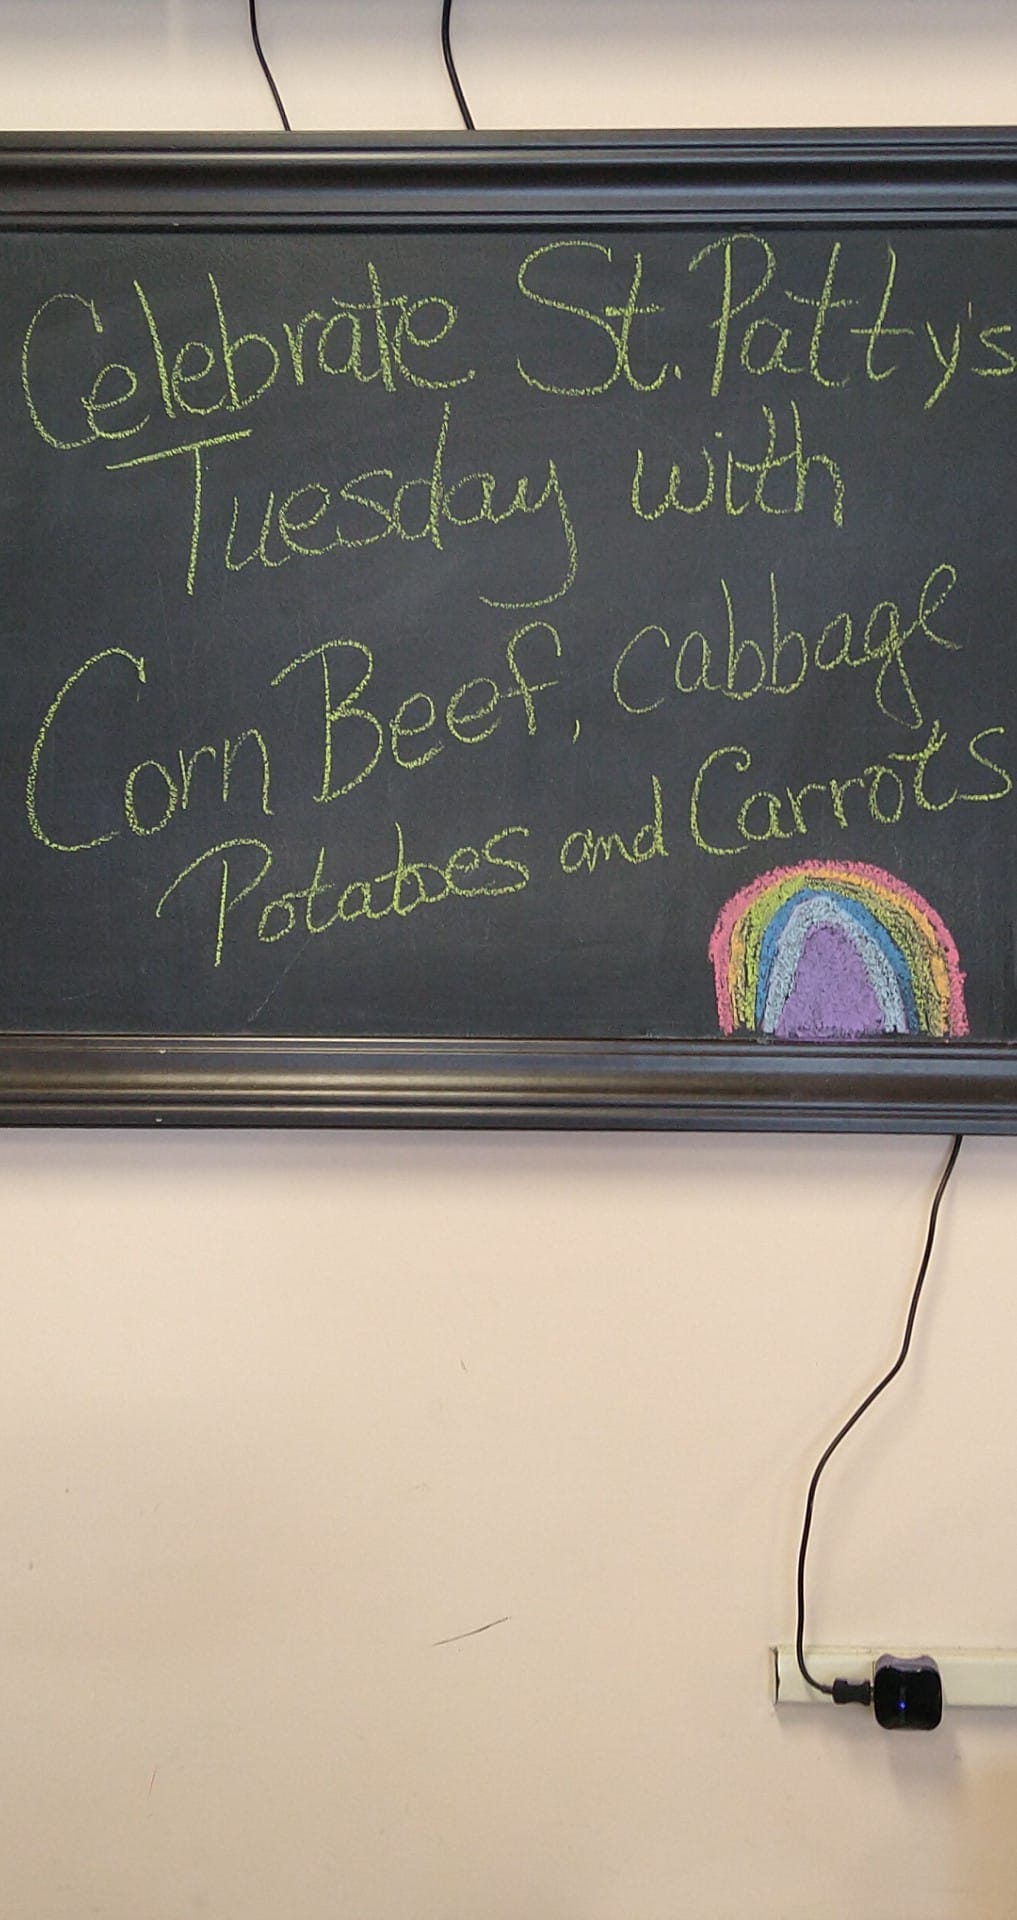 Celebrate St. Patty's
Tuesday with
Corn Beef, cabbage
Potatoes and Carrots